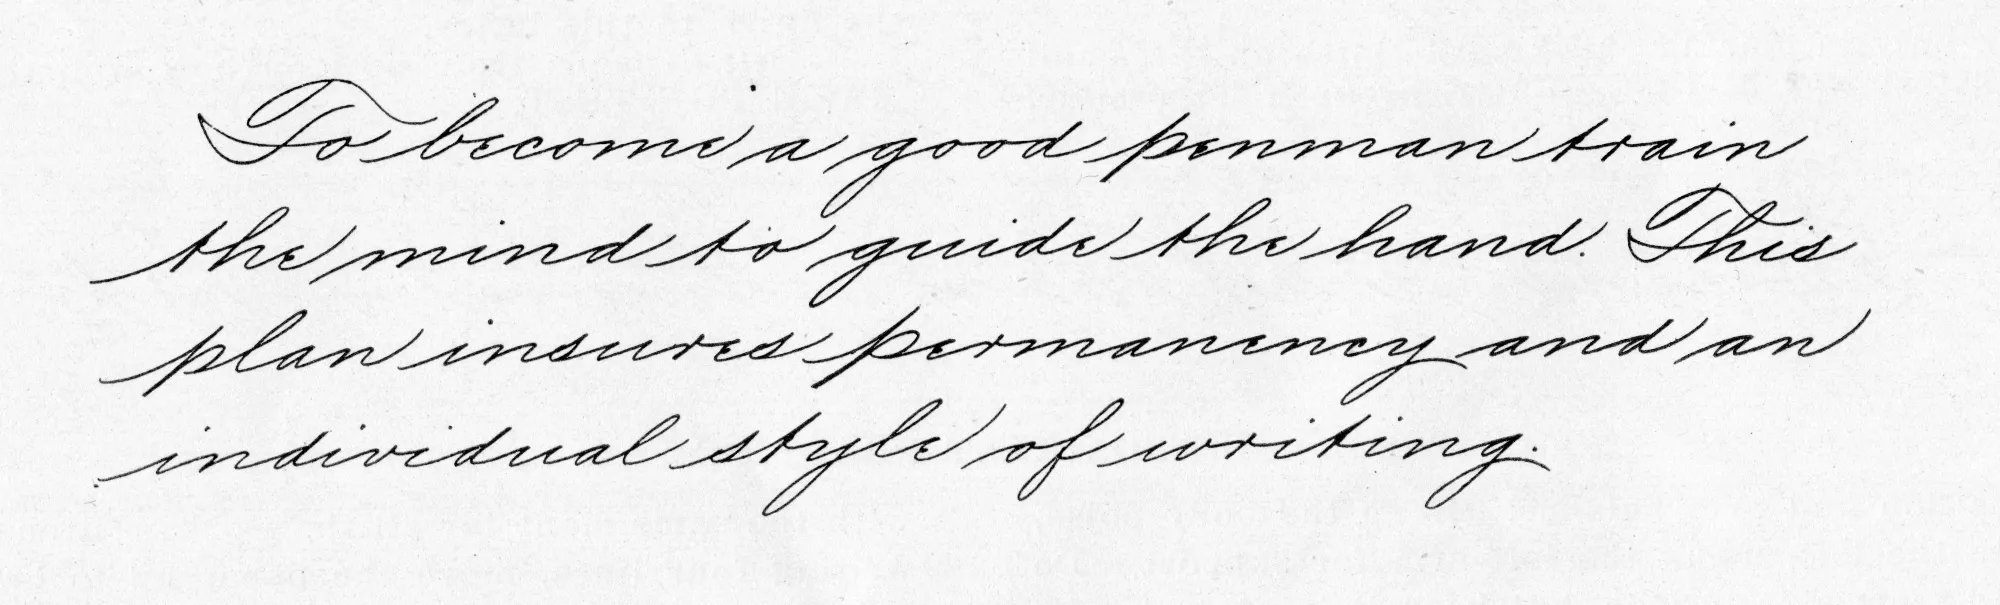 To become a good penman train
the mind to guide the hand. This
plan insures permanency and an
individual style of writing.